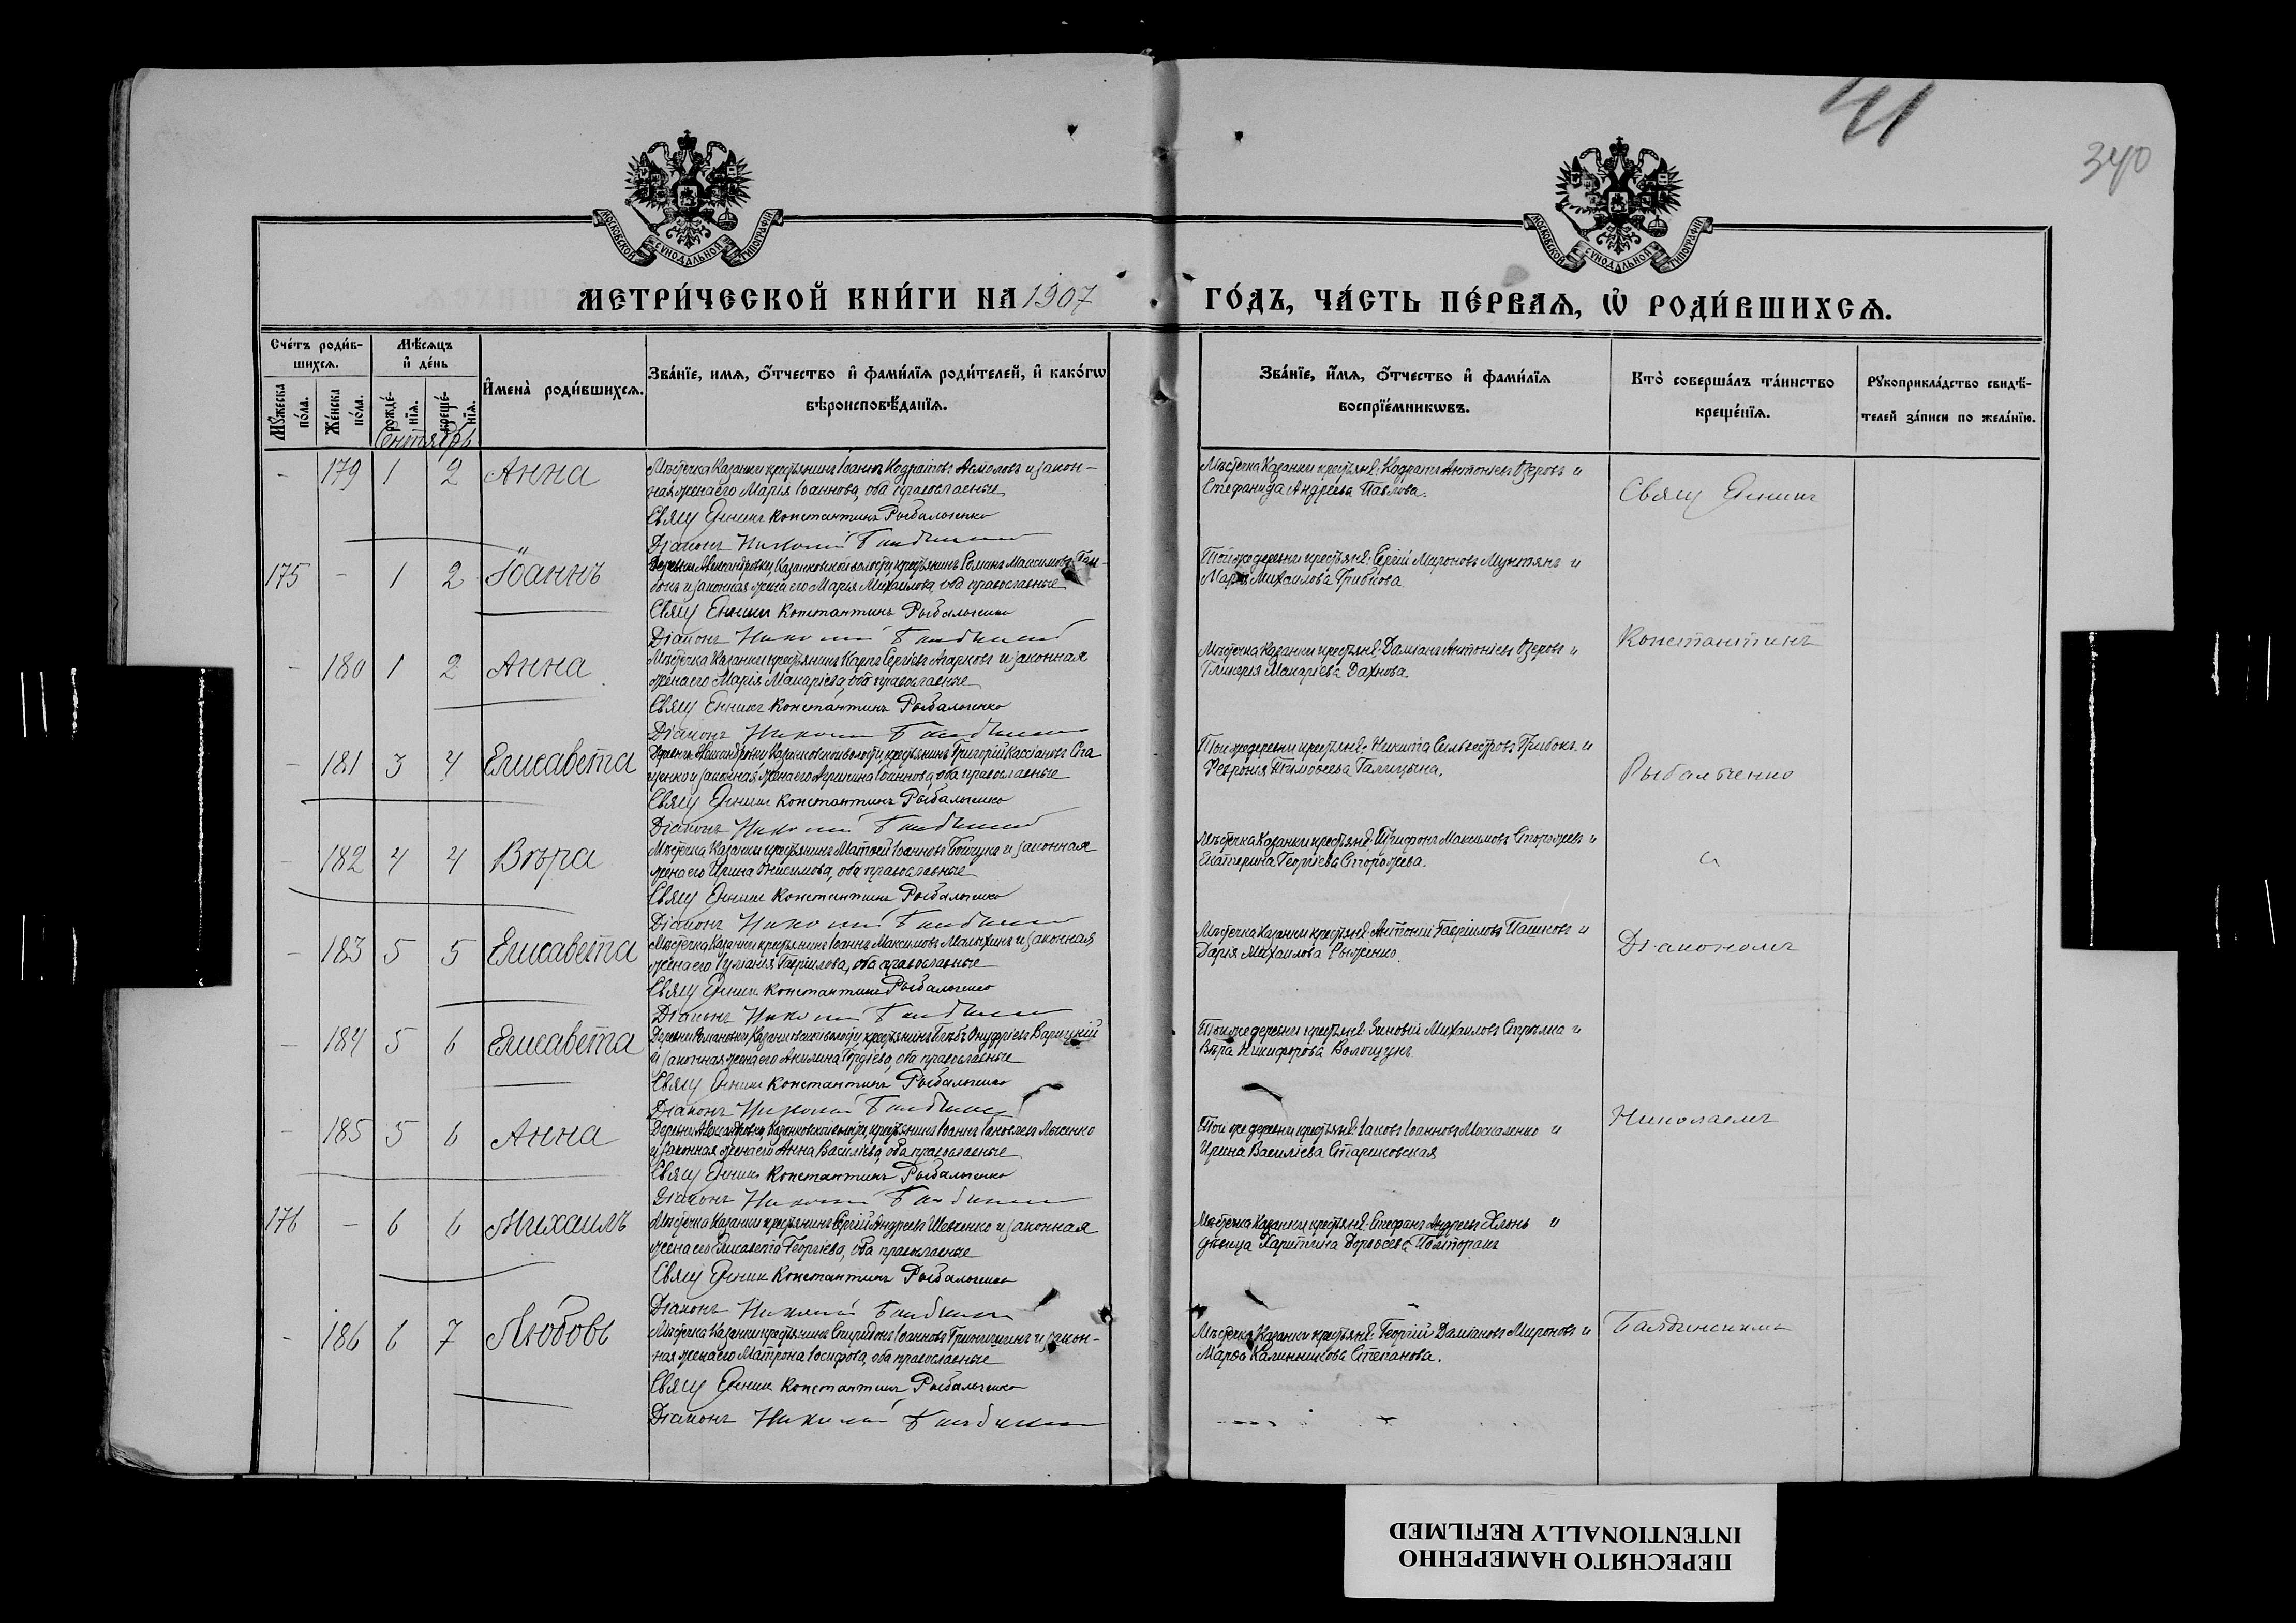 41
340
МОСКОВСКОЙ СѴНОДАЛЬНОЙ ТИПОГРАФІИ
МОСКОВСКОЙ СѴНОДАЛЬНОЙ ТИПОГРАФІИ
МЕТРИ́ЧЕСКОЙ КНИ́ГИ НА 1907 ГО́ДЪ, ЧА́СТЬ ПЕ́РВАѦ, Ѽ РОДИ́ВШИХСѦ.
Сче́тъ роди́в-
шихсѧ.
Мѣ́сѧцъ
и҆ де́нь
И҆мена̀ роди́вшихсѧ.
Зва́нїе, имѧ, ѻ҆́тчество и҆ фами́лїѧ роди́телей, и҆ како́гѡ
вѣроисповѣ́данїѧ.
Зва́нїе, и҆́мѧ, ѻ҆́тчество и҆ фами́лїѧ
воспрїе́мникѡвъ.
Кто̀ соверша́лъ та́инство
креще́нїѧ.
Рꙋкоприкла́дство свидѣ́-
телей за́писи по жела́нїю.
Мꙋ́жеска
по́ла.
Же́нска
по́ла.
рожде́-
нїѧ.
креще́-
нїѧ.
Сентябрь
- 179 1 2 Анна
Мѣстечка Казанки крестьянинъ Іоаннъ Кодратовъ Асмоловъ и закон-
ная жена его Марія Іоаннова, оба православные
Свящ Константинъ Рыбальченко
Діаконъ Николай
Мѣстечка Казанки крестьяне: Кодратъ Антоніевъ Озеровъ и
Стефанида Андреева Павлова.
Свящ
175 - 1 2 Іоаннъ
Деревни Александровки, Казанковской волости, крестьянинъ Романъ Максимовъ
и законная жена его Марія Михаилова, оба православные
Свящ Константинъ Рыбальченко
Діаконъ Николай
Той же деревни крестьяне: Сергій Мироновъ Мунтянъ и
Марія Михаилова Грибкова
Константинъ
- 180 1 2 Анна
Мѣстечка Казанки крестьянинъ Карпъ Сергіевъ Агарковъ и законная
жена его Марія Макаріева, оба православные
Свящ Константинъ Рыбальченко
Діаконъ Николай
Мѣстечка Казанки крестьяне: Даміанъ Антоніевъ Озеровъ и
Гликерія Макаріева Дахнова.
- 181 3 4 Елисавета
Деревни Александровки, Казанковской волости, крестьянинъ Григорій Кассіановъ
и законная жена его Агрипина Іоаннова, оба православные
Свящ Константинъ Рыбальченко
Діаконъ Николай
Той же деревни крестьяне: Никита Сильвестровъ Грибокъ и
Феврония Тимоѳеева Галицына.
Рыбальченко
- 182 4 4 Вѣра
Мѣстечка Казанки крестьянинъ Матѳей Іоанновъ и законная
жена его Ирина Онисимова, оба православные
Свящ Константинъ Рыбальченко
Діаконъ Николай
Мѣстечка Казанки крестьяне: Трифонъ Максимовъ Сторожевъ и
Екатерина Георгіева Сторожева.
съ
- 183 5 5 Елисавета
Мѣстечка Казанки крестьянинъ Іоаннъ Максимовъ Малыхинъ и законная
жена его Гавріилова, оба православные
Свящ Константинъ Рыбальченко
Діаконъ Николай
Мѣстечка Казанки крестьяне: Антоній Гавріиловъ Пашковъ и
Дарія Михаилова
Діакономъ
- 184 5 6 Елисавета
Деревни Романовки Казанковской волости, крестьянинъ Глѣбъ Онуфріевъ Варицкій
и законная жена его Акилина Гордіева, оба православные
Свящ Константинъ Рыбальченко
Діаконъ Николай
Той же деревни крестьяне: Зиновій Михаиловъ и
Вѣра Никифорова Вологцунъ
- 185 5 6 Анна
Деревни Александровки, Казанковской волости, крестьянинъ Іоаннъ Іаковлевъ Лысенко
и законная жена его Анна Василіева, оба православные
Свящ Константинъ Рыбальченко
Діаконъ Николай
Той же деревни крестьяне: Іаковъ Іоанновъ Москаленко и
Ирина Василіева
Николаемъ
176 - 6 6 Михаилъ
Мѣстечка Казанки крестьянинъ Сергій Андреевъ Шевченко и законная
жена его Елисавета Георгіева, оба православные
Свящ Константинъ Рыбальченко
Діаконъ Николай
Мѣстечка Казанки крестьяне: Стефанъ Андреевъ Хлонь и
дѣвица Харитина Дороѳеева
- 186 6 7 Любовь
Мѣстечка Казанки крестьянинъ Спиридонъ Іоанновъ и закон-
ная жена его Матрона Іосифова, оба православные
Свящ Константинъ Рыбальченко
Діаконъ Николай
Мѣстечка Казанки крестьяне: Георгій Даміановъ Мироновъ и
Марѳа Калинникова Степанова.
ПЕРЕСНЯТО НАМЕРЕННО
INTENTIONALLY REFILMED